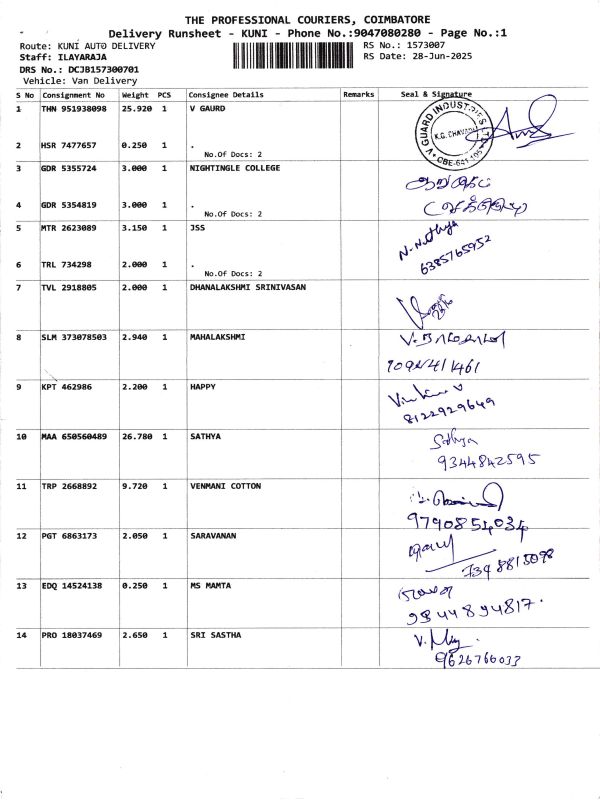 THE PROFESSIONAL COURIERS, COIMBATORE
Delivery Runsheet - KUNI - Phone No.:9047080280 - Page No.:1
Route: KUNI AUTO DELIVERY
RS No.: 1573007
Staff: ILAYARAJA
RS Date: 28-Jun-2025
DRS No.: DCJB157300701
Vehicle: Van Delivery
S No Consignment No Weight PCS Consignee Details Remarks Seal & Signature
1 THN 951938098 25.920 1 V GAURD
V GUARD INDUSTRIES
K.G. CHAVADI
CBE-641 105
2 HSR 7477657 0.250 1 .
No.Of Docs: 2
3 GDR 5355724 3.000 1 NIGHTINGLE COLLEGE
4 GDR 5354819 3.000 1 .
No.Of Docs: 2
5 MTR 2623089 3.150 1 JSS
N. Nithya
6385765952
6 TRL 734298 2.000 1 .
No.Of Docs: 2
7 TVL 2918805 2.000 1 DHANALAKSHMI SRINIVASAN
8 SLM 373078503 2.940 1 MAHALAKSHMI
9 KPT 462986 2.200 1 HAPPY
8122929649
10 MAA 650560489 26.780 1 SATHYA
Sathya
9344842595
11 TRP 2668892 9.720 1 VENMANI COTTON
9790854034
12 PGT 6863173 2.050 1 SARAVANAN
13 EDQ 14524138 0.250 1 MS MAMTA
9944894817.
14 PRO 18037469 2.650 1 SRI SASTHA
9626766033